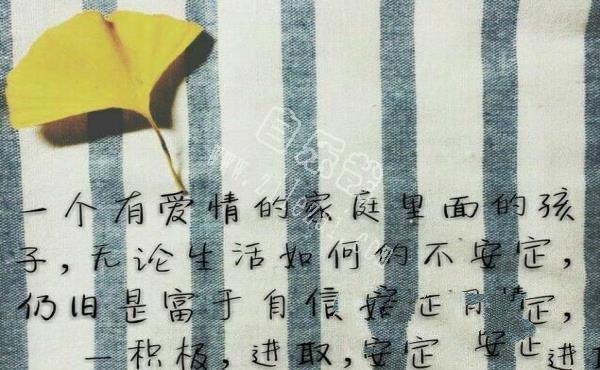 一个有爱情的家庭里面的孩
子,无论生活如何的不安定,
仍旧是富于自信 定,
一积极,进取,安定 进